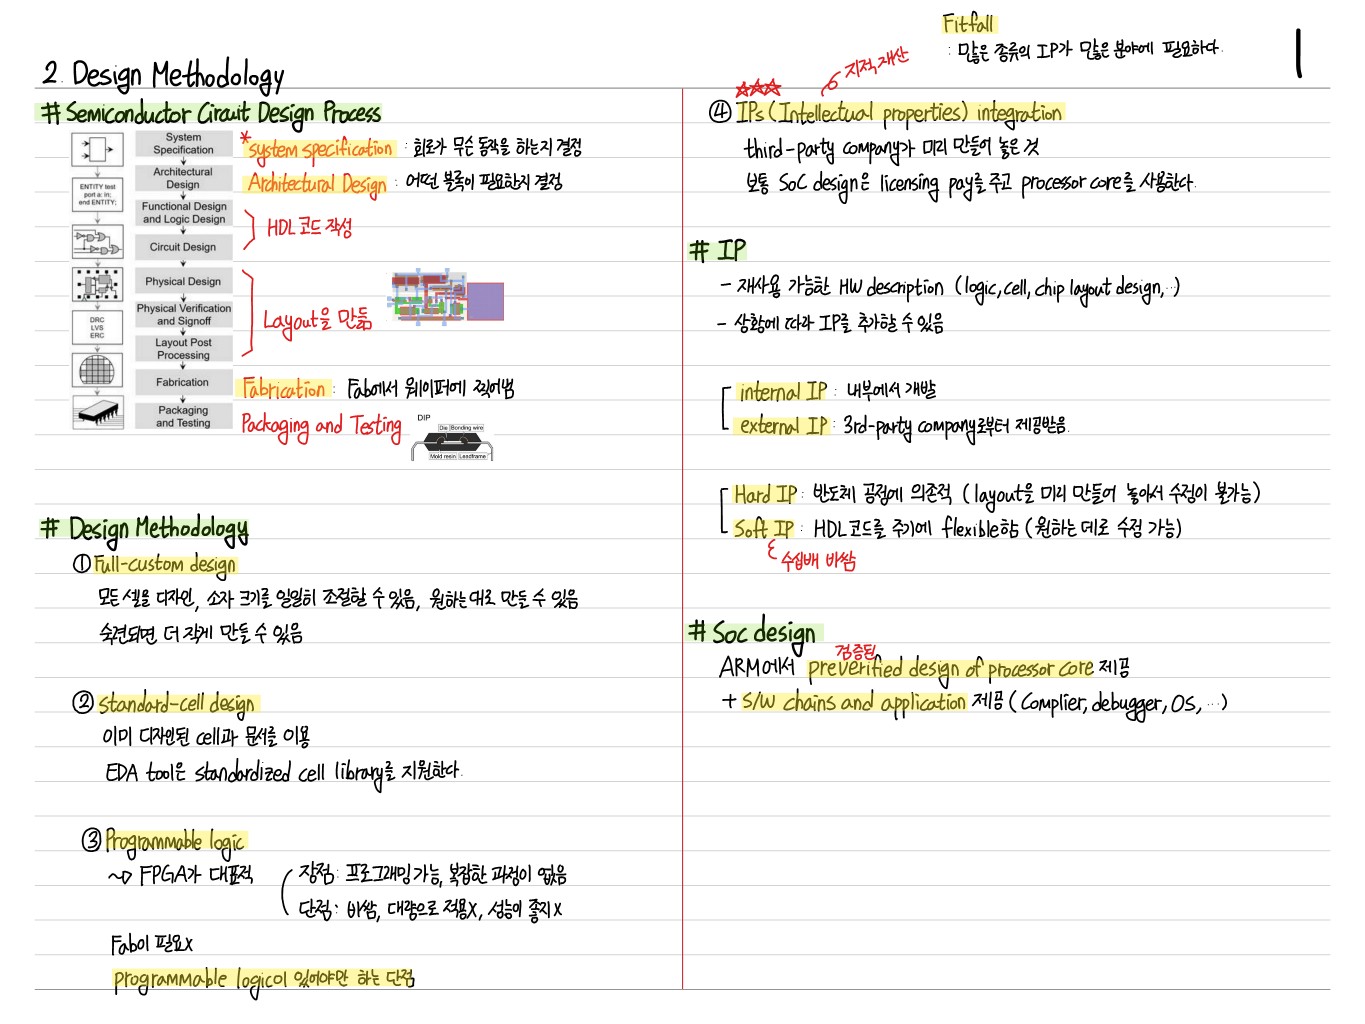 Fitfall
: 많은 종류의 IP가 많은 분야에 필요하다.
1
2. Design Methodology
# Semiconductor Circuit Design Process
System Specification
Architectural Design
Functional Design and Logic Design
Circuit Design
Physical Design
Physical Verification and Signoff
Layout Post Processing
Fabrication
Packaging and Testing
ENTITY test
port a: in;
end ENTITY;
DRC
LVS
ERC
* system specification : 회로가 무슨 동작을 하는지 결정
Architectural Design : 어떤 블록이 필요한지 결정
HDL 코드 작성
Layout을 만듦
Fabrication : Fab에서 웨이퍼에 찍어냄
Packaging and Testing
DIP
Die Bonding wire
Mold resin Leadframe
# Design Methodology
① Full-custom design
모든 셀을 디자인, 소자 크기를 일일히 조절할 수 있음, 원하는대로 만들 수 있음
숙련되면 더 작게 만들 수 있음
② standard-cell design
이미 디자인된 cell과 문서를 이용
EDA tool은 standardized cell library를 지원한다.
③ Programmable logic
~> FPGA가 대표적
장점 : 프로그래밍 가능, 복잡한 과정이 없음
단점 : 비쌈, 대량으로 적용X, 성능이 좋지X
Fab이 필요X
programmable logic이 있어야만 하는 단점
☆☆☆
지적재산
④ IPs (Intellectual properties) integration
third-party company가 미리 만들어 놓은 것
보통 SoC design은 licensing pay를 주고 processor core를 사용한다.
# IP
- 재사용 가능한 HW description (logic, cell, chip layout design, ..)
- 상황에 따라 IP를 추가할 수 있음
internal IP : 내부에서 개발
external IP : 3rd-party company로부터 제공받음.
Hard IP : 반도체 공정에 의존적 (layout을 미리 만들어 놓아서 수정이 불가능)
Soft IP : HDL 코드를 주기에 flexible함 (원하는 데로 수정 가능)
수십배 비쌈
# Soc design
검증된
ARM에서 preverified design of processor core 제공
+ S/W chains and application 제공 (Complier, debugger, OS, ...)